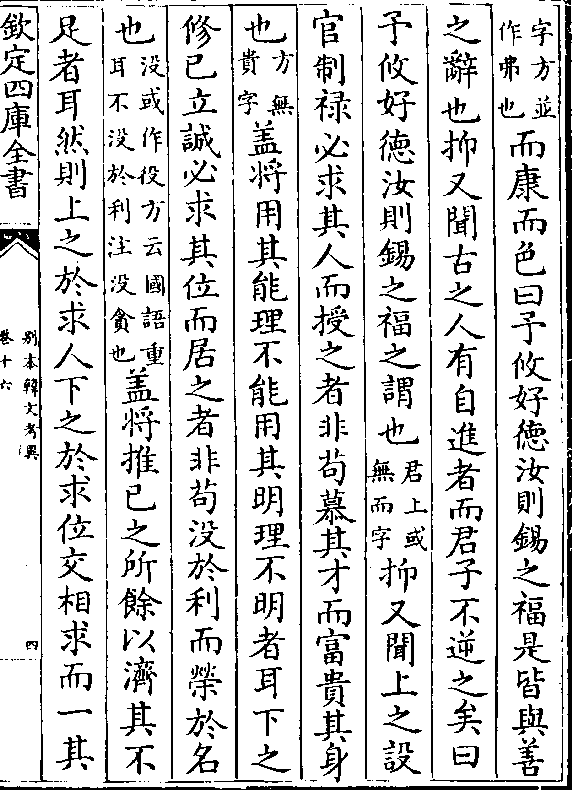 字方並
作弗也
而康而色曰予攸好徳汝則錫之福是皆與善
之辭也抑又聞古之人有自進者而君子不逆之矣曰
予攸好德汝則錫之福之謂也
君上或
無而字
抑又聞上之設
官制禄必求其人而授之者非苟慕其才而富貴其身
也
方無
貴字
盖將用其能理不能用其明理不明者耳下之
修已立誠必求其位而居之者非苟没於利而榮於名
也
没或作役方云國語重
耳不没於利注没貪也
盖將推已之所餘以濟其不
足者耳然則上之於求人下之於求位交相求而一其
欽定四庫全書
别本韓文考異
卷十六
四